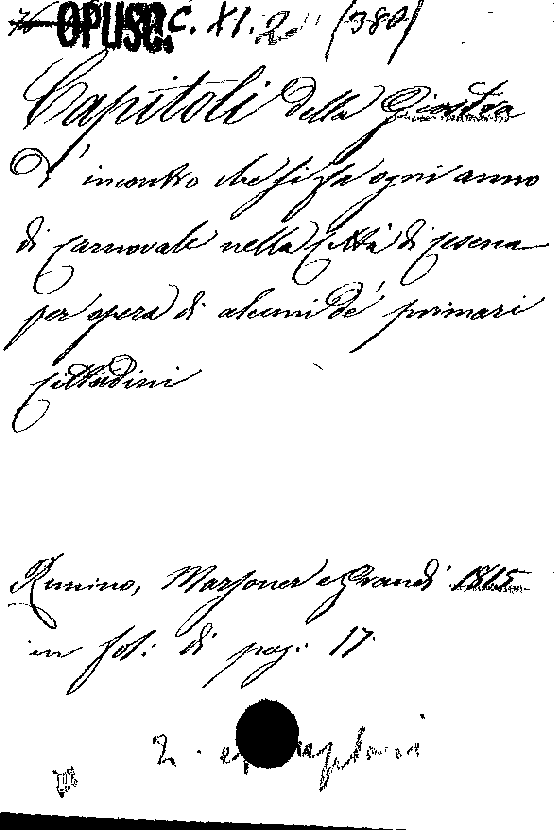 OPUSC. C. XI. 2 (380)
Capitoli della Giostra
d'incontro che si fa ogni anno
di carnovale nella Città di Cesena
per opera di alcuni de' primari
Cittadini
Rimino, Marsoner e Grandi 1815
in fol: di pag: 17.
2. esemplari